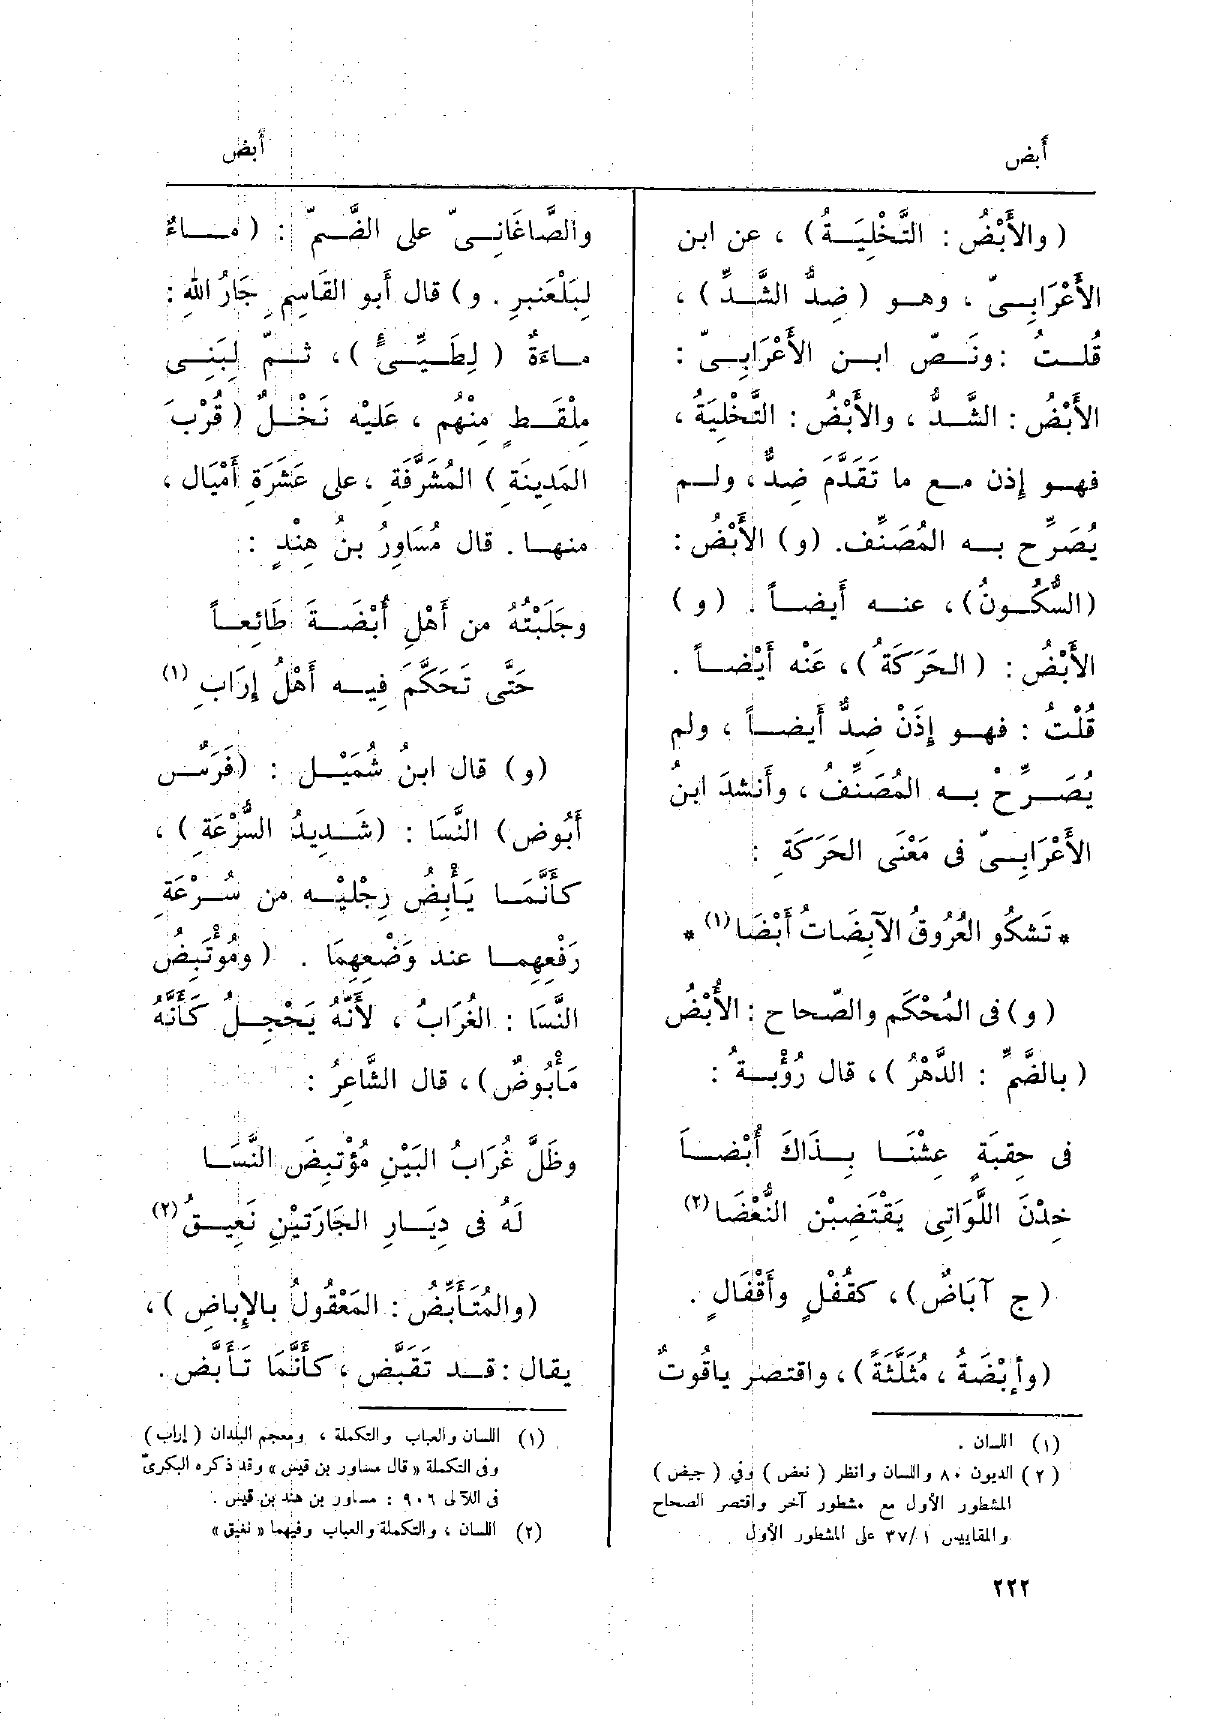 أبض
أبض
(والأَبْضُ : التَّخْلِيَةُ) ، عن ابن
الأَعْرَابِىّ ، وهو (ضِدُّ الشَّدِّ) ،
قُلتُ : ونَصّ ابن الأَعْرَابِىّ :
الأَبْضُ : الشَّدُّ ، والأَبْضُ : التَّخْلِيَةُ ،
فهو إِذن مع ما تَقَدَّمَ ضِدٌّ ، ولم
يُصَرِّح به المُصَنِّف. (و) الأَبْضُ :
(السُّكُونُ) ، عنه أَيضاً . (و)
الأَبْضُ : (الحَرَكَةُ) ، عَنْه أَيْضاً .
قُلْتُ : فهو إِذَنْ ضِدٌّ أَيضاً ، ولم
يُصَرِّحْ به المُصَنِّفُ ، وأَنشدَ ابنُ
الأَعْرَابِىّ فى مَعْنَى الحَرَكَةِ :
* تَشكُو العُرُوقُ الآبِضَاتُ أَبْضَا (١) *
(و) فى المُحْكَم والصّحاح : الأُبْضُ
(بالضَّمِّ : الدَّهْرُ) ، قال رُؤْبةُ :
فى حِقبَةٍ عِشْنَا بِذَاكَ أُبْضاَ
خِدْنَ اللَّوَاتِى يَقْتَضِبْن النُّعْضَا (٢)
(ج آبَاضٌ) ، كقُفْلٍ وأَقْفَالٍ .
(وأَبْضَةُ ، مُثَلَّثَةً) ، واقتصر ياقوتٌ
(١) اللسان .
(٢) الديون ٨٠ واللسان وانظر (نعض) وفي (جيض)
المشطور الأول مع مشطور آخر واقتصر الصحاح
والمقاييس ٣٧/١ على المشطور الأول
والصَّاغَانِىّ على الضَّمّ : (مَاءٌ
لِبَلْعَنبرِ . و) قال أَبو القَاسِمِ جَارُ اللهِ :
ماءَةٌ (لِطَيِّئٍ) ، ثمّ لِبَنِى
مِلْقَطٍ مِنْهم ، عَلَيْه نَخْلٌ (قُرْبَ
المَدِينَةِ) المُشَرَّفَةِ ، على عَشَرَةِ أَمْيَال ،
منها . قال مُسَاوِرُ بنُ هِنْدٍ :
وجَلَبْتُهُ من أَهْلِ أُبْضَةَ طَائِعاً
حَتَّى تَحَكَّمَ فِيه أَهْلُ إِرَابِ (١)
(و) قال ابنُ شُمَيْل : (فَرَسٌ
أَبُوض) النَّسَا : (شَدِيدُ السُّرْعَةِ) ،
كأَنَّمَا يَأْبِضُ رِجْلَيْه من سُرْعَةِ
رَفْعِهِما عند وَضْعِهِمَا . (ومُؤْتَبِضُ
النَّسَا : الغُرَابُ ، لأَنَّهُ يَحْجِلُ كَأَنَّهُ
مَأْبُوضٌ) ، قال الشَّاعِرُ :
وظَلَّ غُرَابُ البَيْنِ مُؤْتبِضَ النَّسَا
لَهُ فى دِيَارِ الجَارَتَيْنِ نَعِيقُ (٢)
(والمُتَأَبِّضُ : المَعْقُولُ بالإِباضِ) ،
يقال : قد تَقَبَّض ، كأَنَّمَا تَأَبَّض .
(١) اللسان والعباب والتكملة ، ومعجم البلدان (إراب)
وفى التكملة « قال مساور بن قيس » وقد ذكره البكرىّ
فى اللآلى ٩٠٦ : مساور بن هند بن قيس .
(٢) اللسان ، والتكملة والعباب وفيهما « نغيق »
٢٢٢